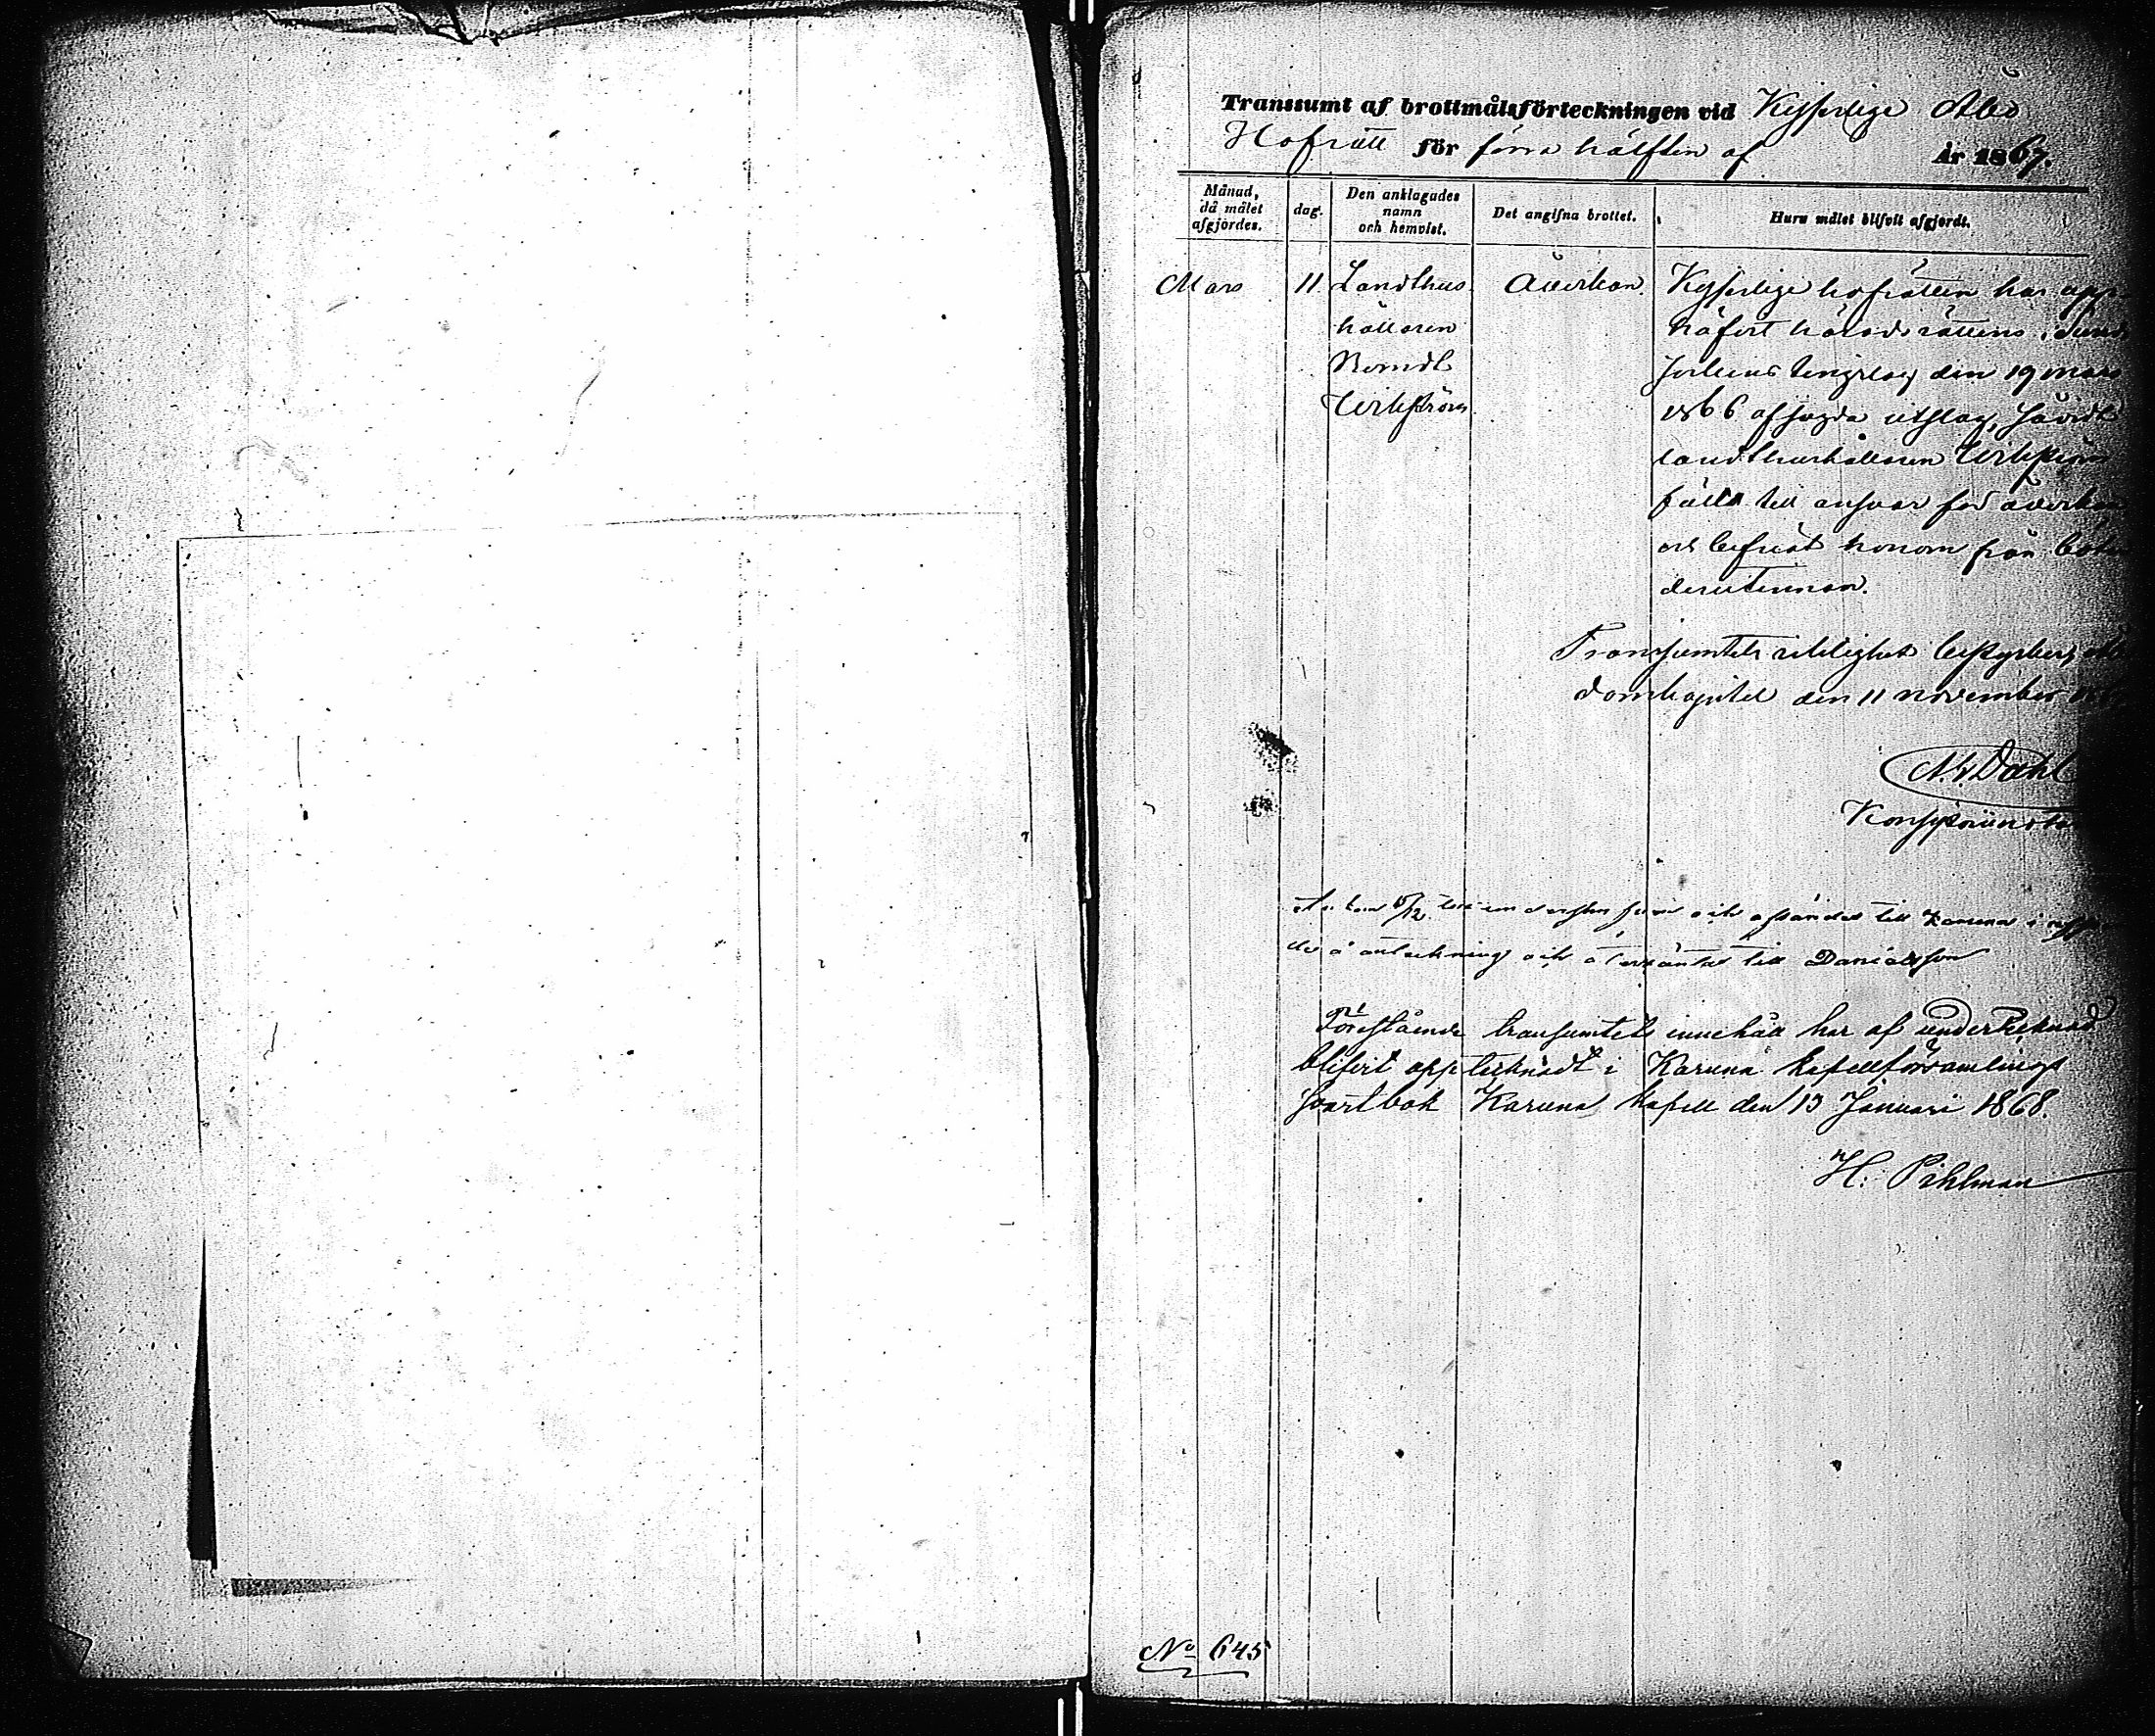 Transsumt af brottmålsförteckningen vid Kejserlige Åbo
Hofrätt för förra hälften af År 1867.
Månad, då målet afgjordes.
dag.
Den anklagades namn och hemvist.
Det angifna brottet.
Huru målet blifvit afgjordt.
Mars 11. Landthus
hållaren
Berndt
Åverkan.
Kejserlige hofrätten har upp
häfvit häradsrättens i
tingslag den 19 mars
1866 afsagda utslag, såvidt
landthushållaren
fällts till ansvar för åverkan
och befriat honom från böter
derutinnan.
Transsumtets riktighet bestyrker,
domkapitel den 11 november
Dahl
och afsändes till Karuna
anteckning och återsändas till Danielsson
Förestående transumtets innehåll har af undertecknad
blifvit upptecknadt i Karuna kapellförsamlings
svartbok Karuna kapell den 13 Januari 1868.
H. Pihlman
No 645